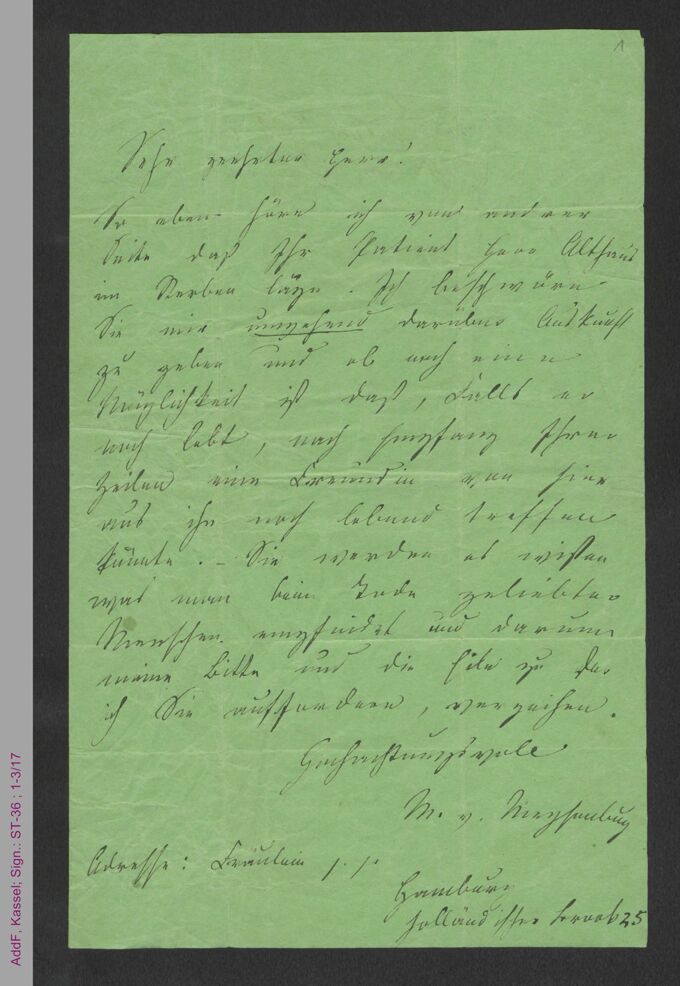 1
Sehr geehrter Herr!
So eben höre ich von andrer
Seite daß Ihr Patient Herr Althaus
im Sterben läge. Ich beschwöre
Sie mir umgehend darüber Auskunft
zu geben und ob noch eine
Möglichkeit ist daß, falls er
noch lebt, nach Empfang Ihrer
Zeilen eine Freundin von hier
aus ihn noch lebend treffen
könnte. – Sie werden es wissen
was man beim Tode geliebter
Menschen empfindet und darum
meine Bitte und die Eile zu der
ich Sie auffordere, verzeihen.
Hochachtungsvoll
M. v. Meysenbug
Adresse: Fräulein
Hamburg
holländischer Brook 25
AddF, Kassel; Sign.: ST-36 ; 1-3/17